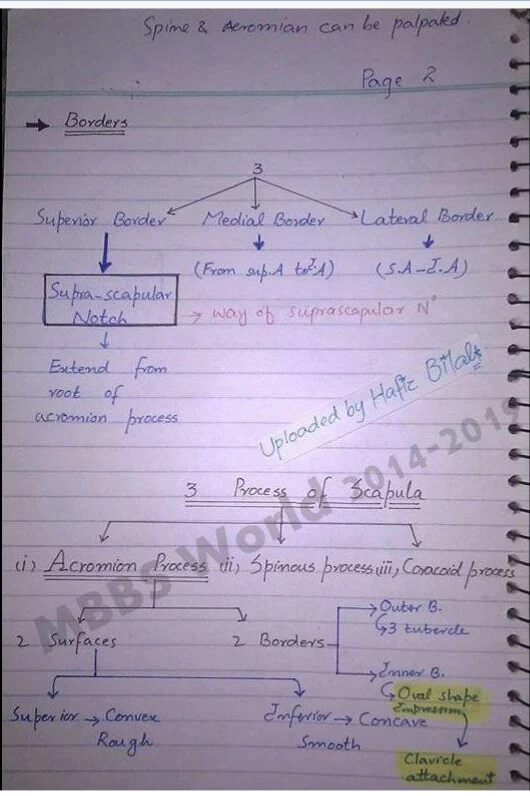 Spine & Acromian can be palpated.
Page 2
→ Borders
3
Superior Border Medial Border Lateral Border
(From sup.A to I.A) (S.A-I.A)
Supra-scapular
Notch
→ way of suprascapular N°
Extend from
root of
acromion process
Uploaded by Hafiz Bilal
MBBS World 2014-2015
3 Process of Scapula
(i) Acromion Process (ii) Spinous process (iii) Coracoid process
2 Surfaces 2 Borders
→ Outer B.
↳ 3 tubercle
→ Inner B.
↳ Oval shape
Impression
Superior → Convex
Rough
Inferior → Concave
Smooth
Clavicle
attachment